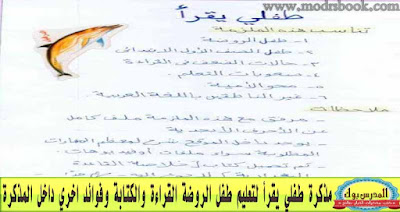 https://www.modrsbook.com
طفلي يقرأ
تناسب هذه الملزمة
١- طفل الروضة
٢- طفل الصف الأول الابتدائي
٣- حالات الضعف في القراءة
٤- صعوبات التعلم
٥- محو الأمية
٦- غير الناطقين باللغة العربية
ملاحظات
- مرفق مع هذه الملزمة ملف كامل
عن الأحرف الأبجدية
- يوجد داخل الموقع شرح لمعظم المهارات
المدرس بوك
مذكرة طفلي يقرأ لتعليم طفل الروضة القراءة والكتابة وفوائد اخري داخل المذكرة